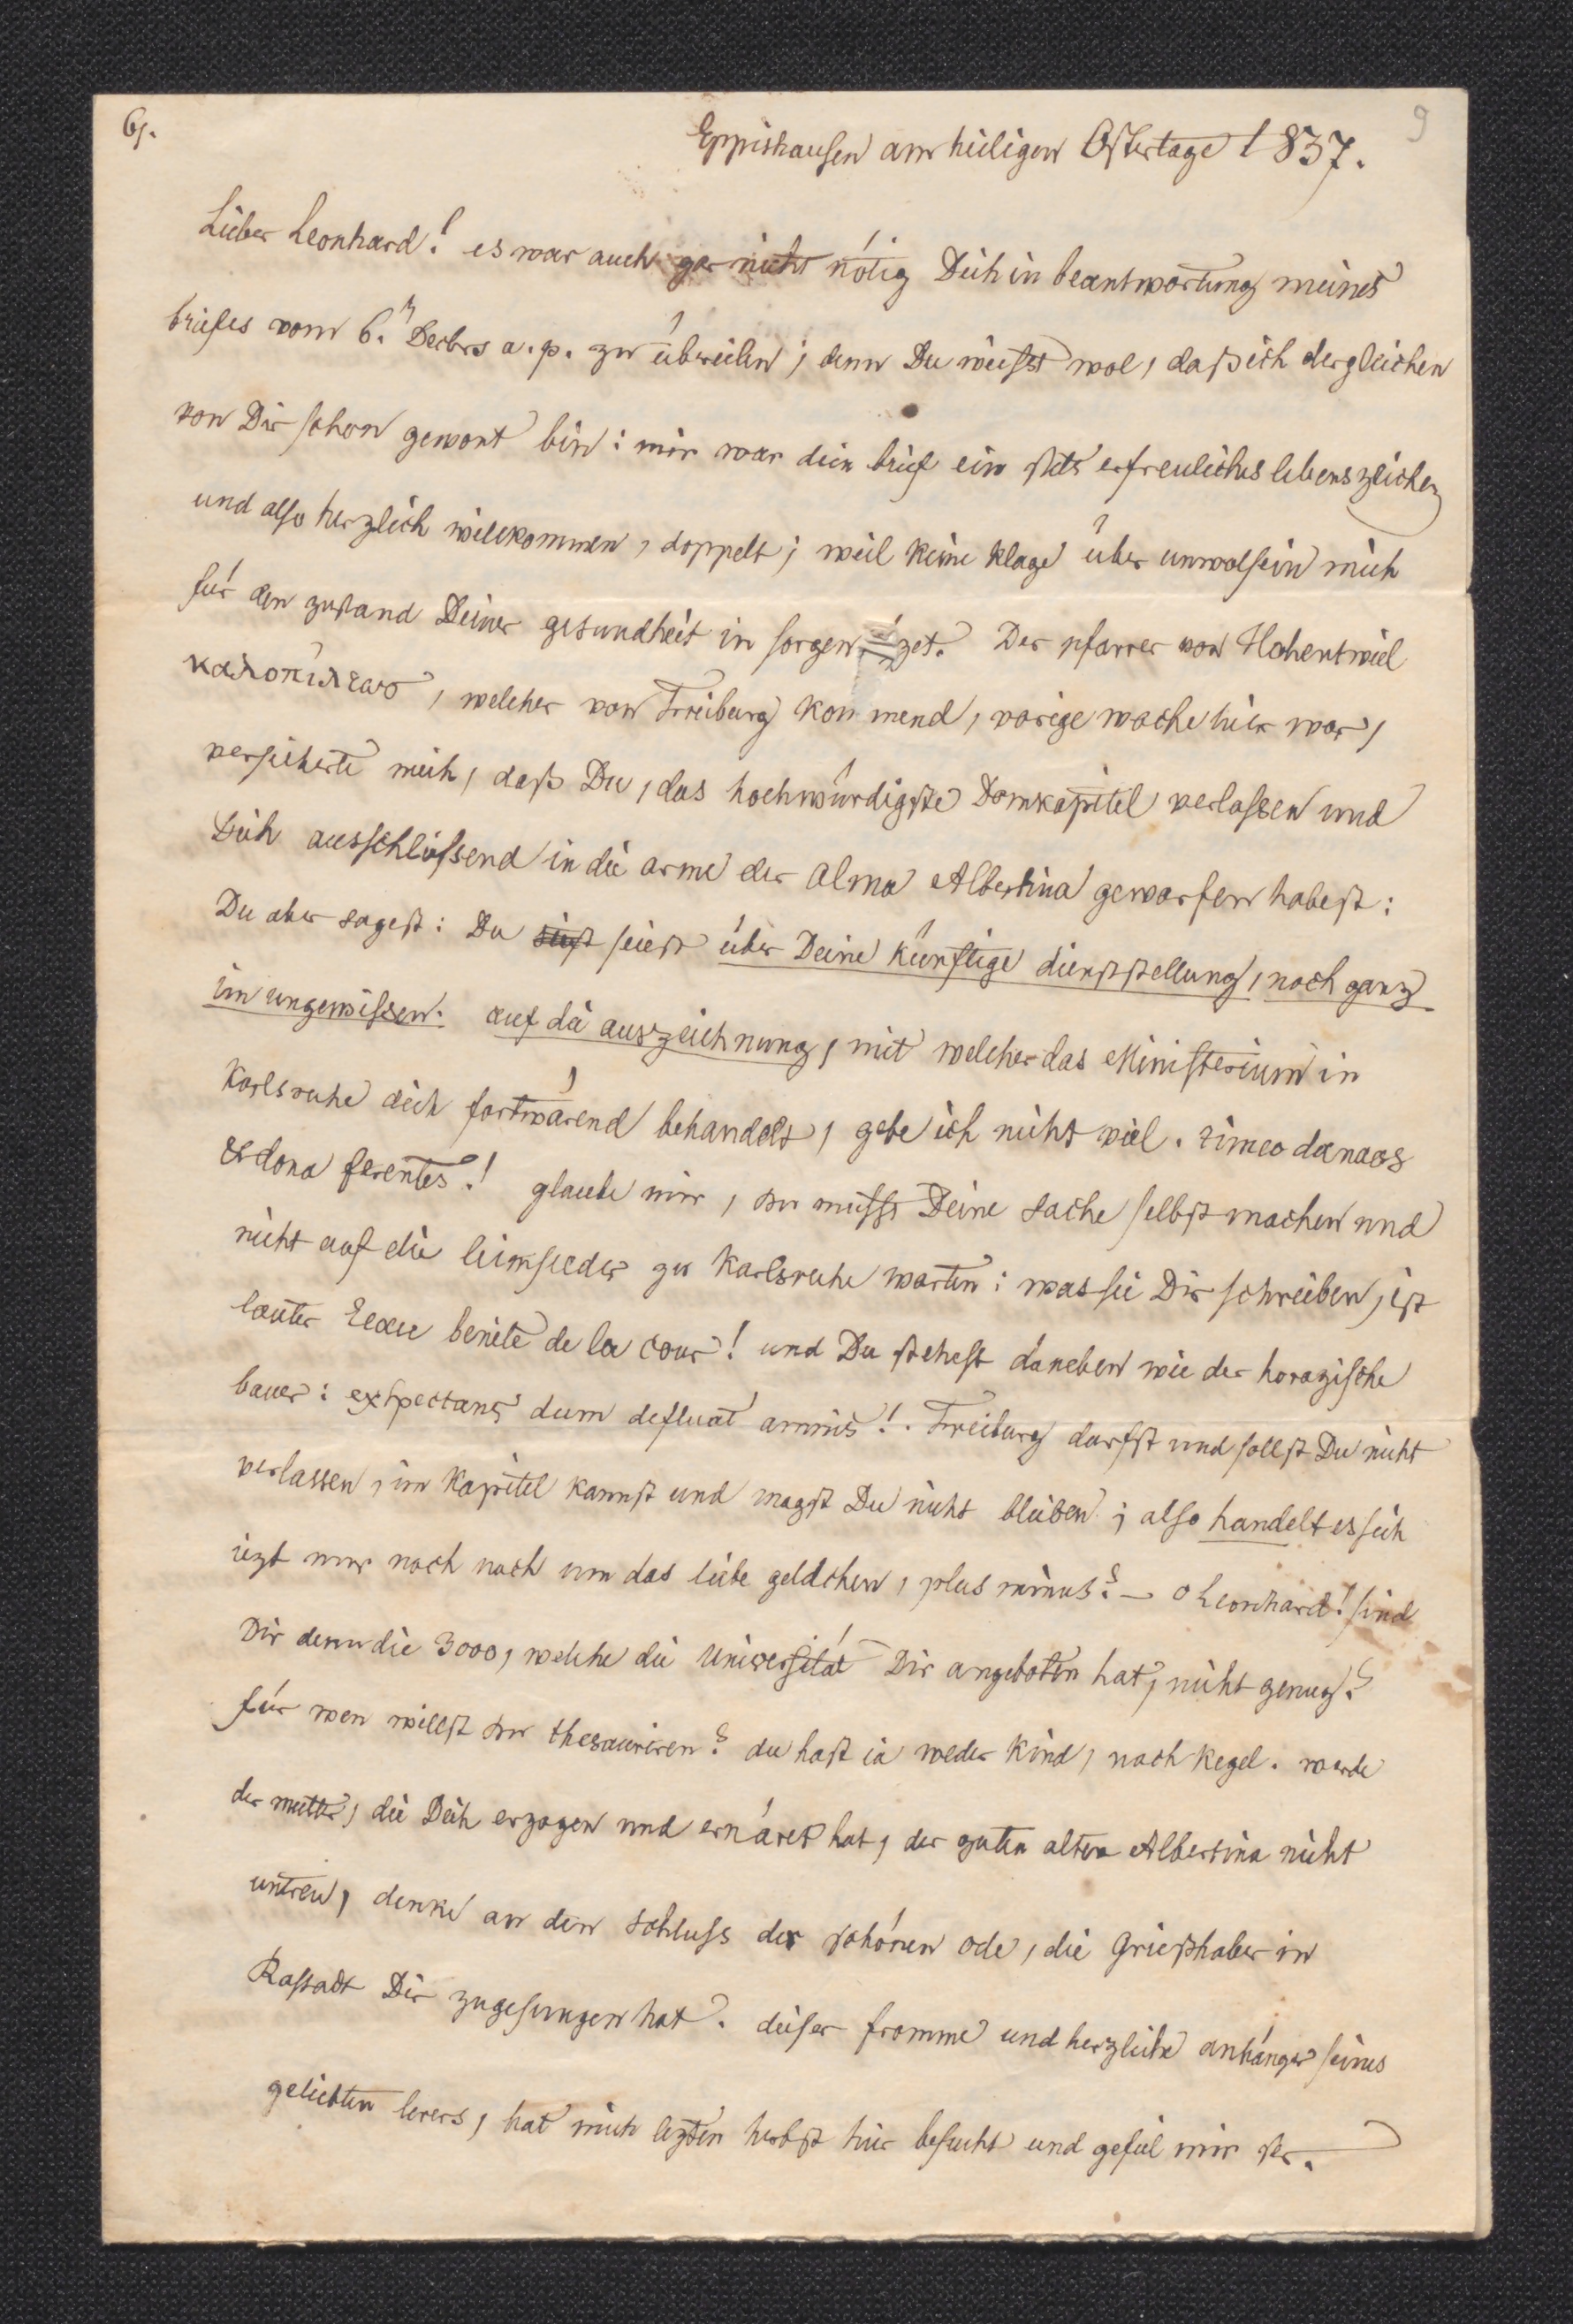 6.
9
Eppishausen am heiligen Ostertage 1837.
Lieber Leonhard! es war auch gar nicht nótig Dich in beantwortung meines
briefes vom 6.ⁿ Decbrs a. p. zu úbereilen; denn Du weisst wol, daß ich dergleichen
von Dir schon gewont bin: mir war dein brief ein stets erfreuliches lebenszeichen
und also herzlich willkommen, doppelt; weil keine klage úber unwolsein mich
fúr den zustand Deiner gesundheit in sorgen sezet. Der pfarrer von Hohentwiel
, welcher von Freiburg kommend, vorige woche hier war,
versicherte mich, daß Du, das hochwúrdigste Domkapitel verlassen und
Dich ausschliessend in die arme der alma Albertina geworfen habest:
Du aber sagest: Du seiest úber Deine kúnftige dienststellung, noch ganz
im ungewissen. auf die auszeichnung, mit welcher das Ministerium in
Karlsruhe dich fortwárend behandelt, gebe ich nicht viel. timeo danaos
et dona ferentes! glaube mir, du musst Deine sache selbst machen und
nicht auf die leimsieder zu Karlsruhe warten: was sie Dir schreiben, ist
lauter Eeau benite de la cour! und Du stehest daneben wie der horazische
bauer: exspectans dum defluat amnis!. Freiburg darfst und sollst Du nicht
verlassen, im Kapitel kannst und magst Du nicht bleiben; also handelt es sich
iezt nur noch noch um das liebe geldchen, plus minus? — o Leonhard! sind
Dir denn die 3000, welche die Universitát Dir angeboten hat, nicht genug?
fúr wen willst du thesauriren? du hast ia weder kind, noch kegel. werde
der mutter, die Dich erzogen und ernáret hat, der guten alten Albertina nicht
untreu, denke an den schluss der schónen ode, die Grieshaber in
Rastadt Dir zugesungen hat. dieser fromme und herzliche anhánger seines
geliebten lerers, hat mich lezten herbst hier besucht und gefiel mir ser.